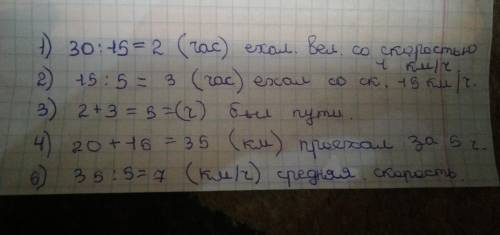 1) 30:15=2 (час) ехал. вел. со скоростью
4 км/ч
2) 15:5= 3 (час) ехал со ск. 15 км/ч.
3) 2+3=5=(ч) был пути.
4) 20+15=35 (км) проехал за 5 ч.
6) 35:5=7 (км/ч) средняя скорость.